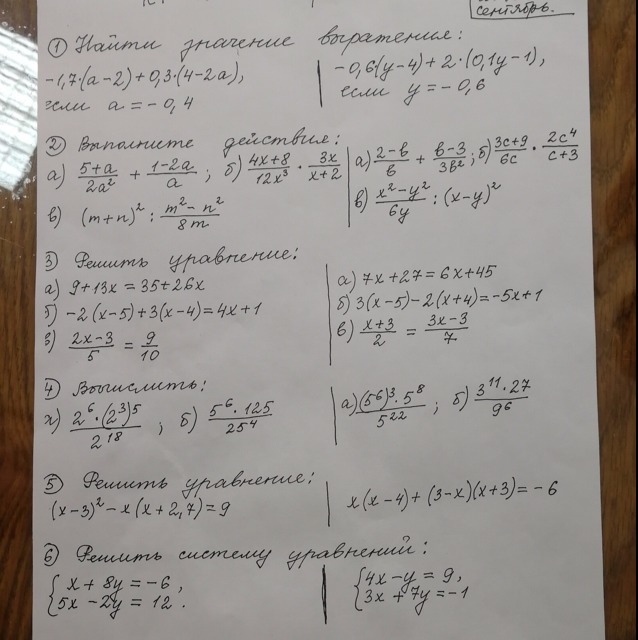 сентябрь.
① Найти значение выражения:
-1,7·(a-2)+0,3·(4-2a),
если a = -0,4
-0,6(y-4)+2·(0,1y-1),
если y = -0,6
② Выполните действия:
а) (5+a)/(2a²) + (1-2a)/a ; б) (4x+8)/(12x³) · 3x/(x+2)
в) (m+n)² : (m²-n²)/(8m)
а) (2-b)/b + (b-3)/(3b²) ; б) (3c+9)/(6c) · 2c⁴/(c+3)
в) (x²-y²)/(6y) : (x-y)²
③ Решить уравнение:
а) 9+13x = 35+26x
б) -2(x-5)+3(x-4)=4x+1
в) (2x-3)/5 = 9/10
а) 7x+27=6x+45
б) 3(x-5)-2(x+4)=-5x+1
в) (x+3)/2 = (3x-3)/7
④ Вычислить:
а) (2⁶·(2³)⁵)/2¹⁸ ; б) (5⁶·125)/25⁴
а) ((5⁶)³·5⁸)/5²² ; б) (3¹¹·27)/9⁶
⑤ Решить уравнение:
(x-3)²-x(x+2,7)=9
x(x-4)+(3-x)(x+3)=-6
⑥ Решить систему уравнений:
{ x+8y=-6,
5x-2y=12.
{ 4x-y=9,
3x+7y=-1